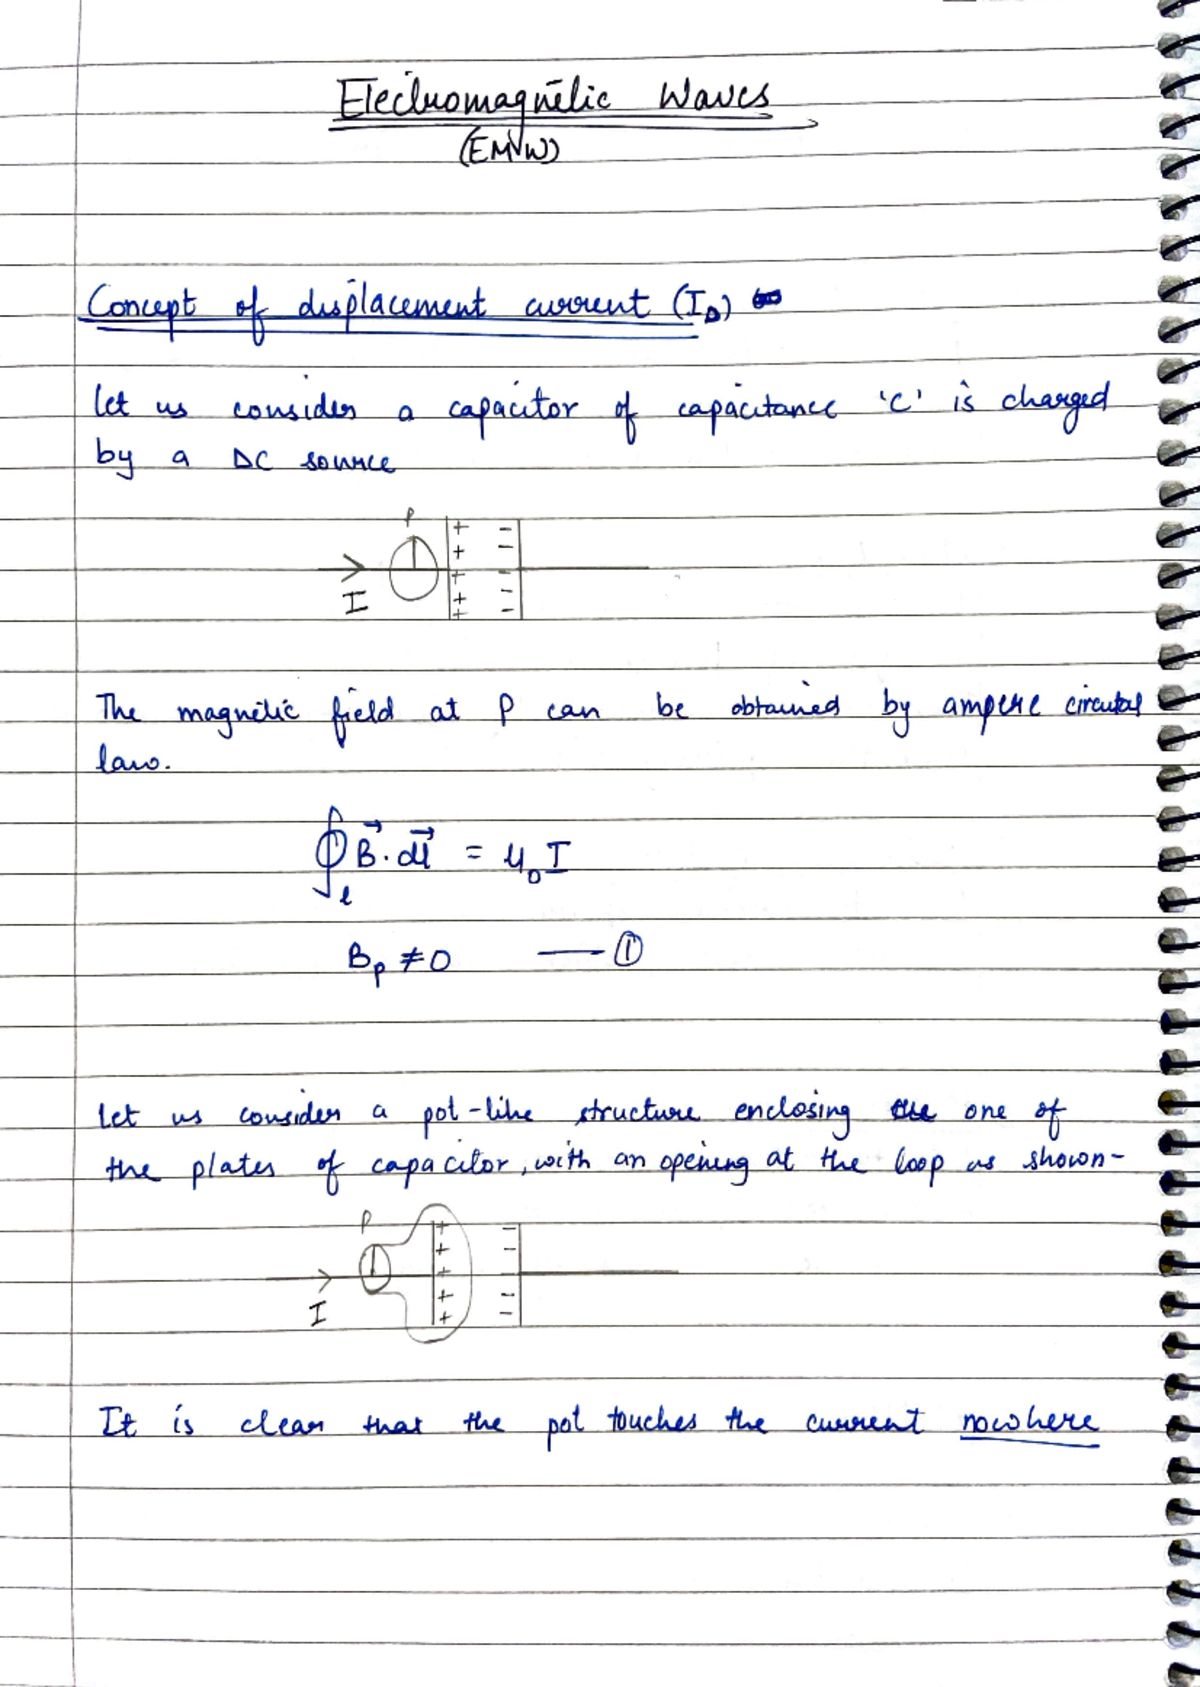 Electromagnetic Waves
(EMW)
Concept of displacement current (I_D)
let us consider a capacitor of capacitance 'C' is charged
by a DC source
P
+ -
+ -
+ -
+ -
+ -
I
The magnetic field at P can be obtained by ampere circuital
law.
∮_l B⃗ . dl⃗ = μ₀ I
B_P ≠ 0 —— ①
Let us consider a pot-like structure enclosing the one of
the plates of capacitor, with an opening at the loop as shown-
P
+ -
+ -
+
+ -
+ -
I
It is clear that the pot touches the current nowhere